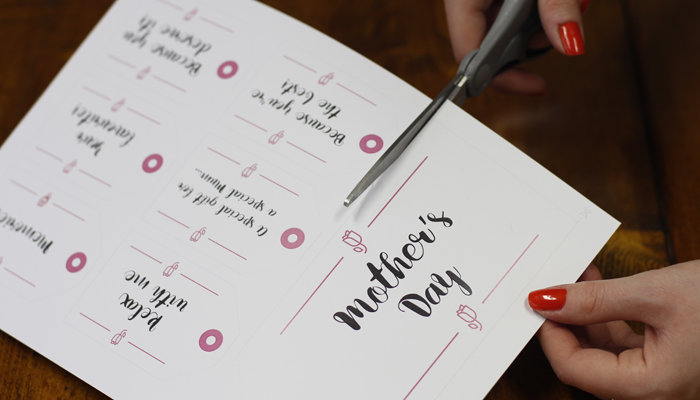 Because you
deserve it!
Because you're
the best!
Your
favourite!
A special gift for
a special Mum...
Memories
Relax
with me
Mother's
Day